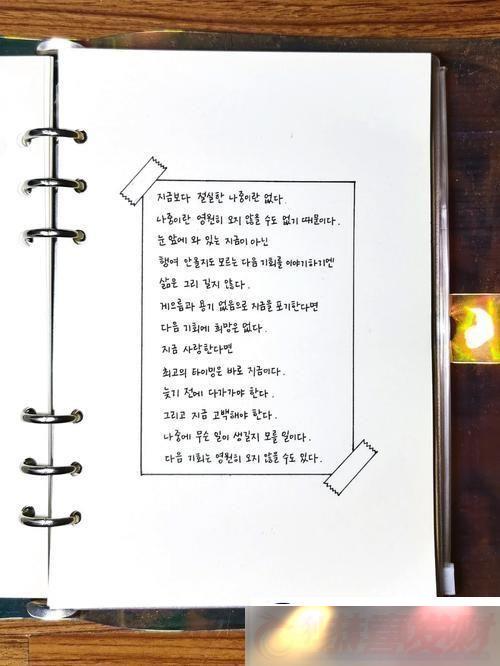 지금보다 절실한 나중이란 없다.
나중이란 영원히 오지 않을 수도 있기 때문이다.
눈 앞에 와 있는 지금이 아닌
행여 안 올지도 모르는 다음 기회를 이야기하기엔
삶은 그리 길지 않다.
게으름과 용기 없음으로 지금을 포기한다면
다음 기회에 희망은 없다.
지금 사랑한다면
최고의 타이밍은 바로 지금이다.
늦기 전에 다가가야 한다.
그리고 지금 고백해야 한다.
나중에 무슨 일이 생길지 모를 일이다.
다음 기회는 영원히 오지 않을 수도 있다.